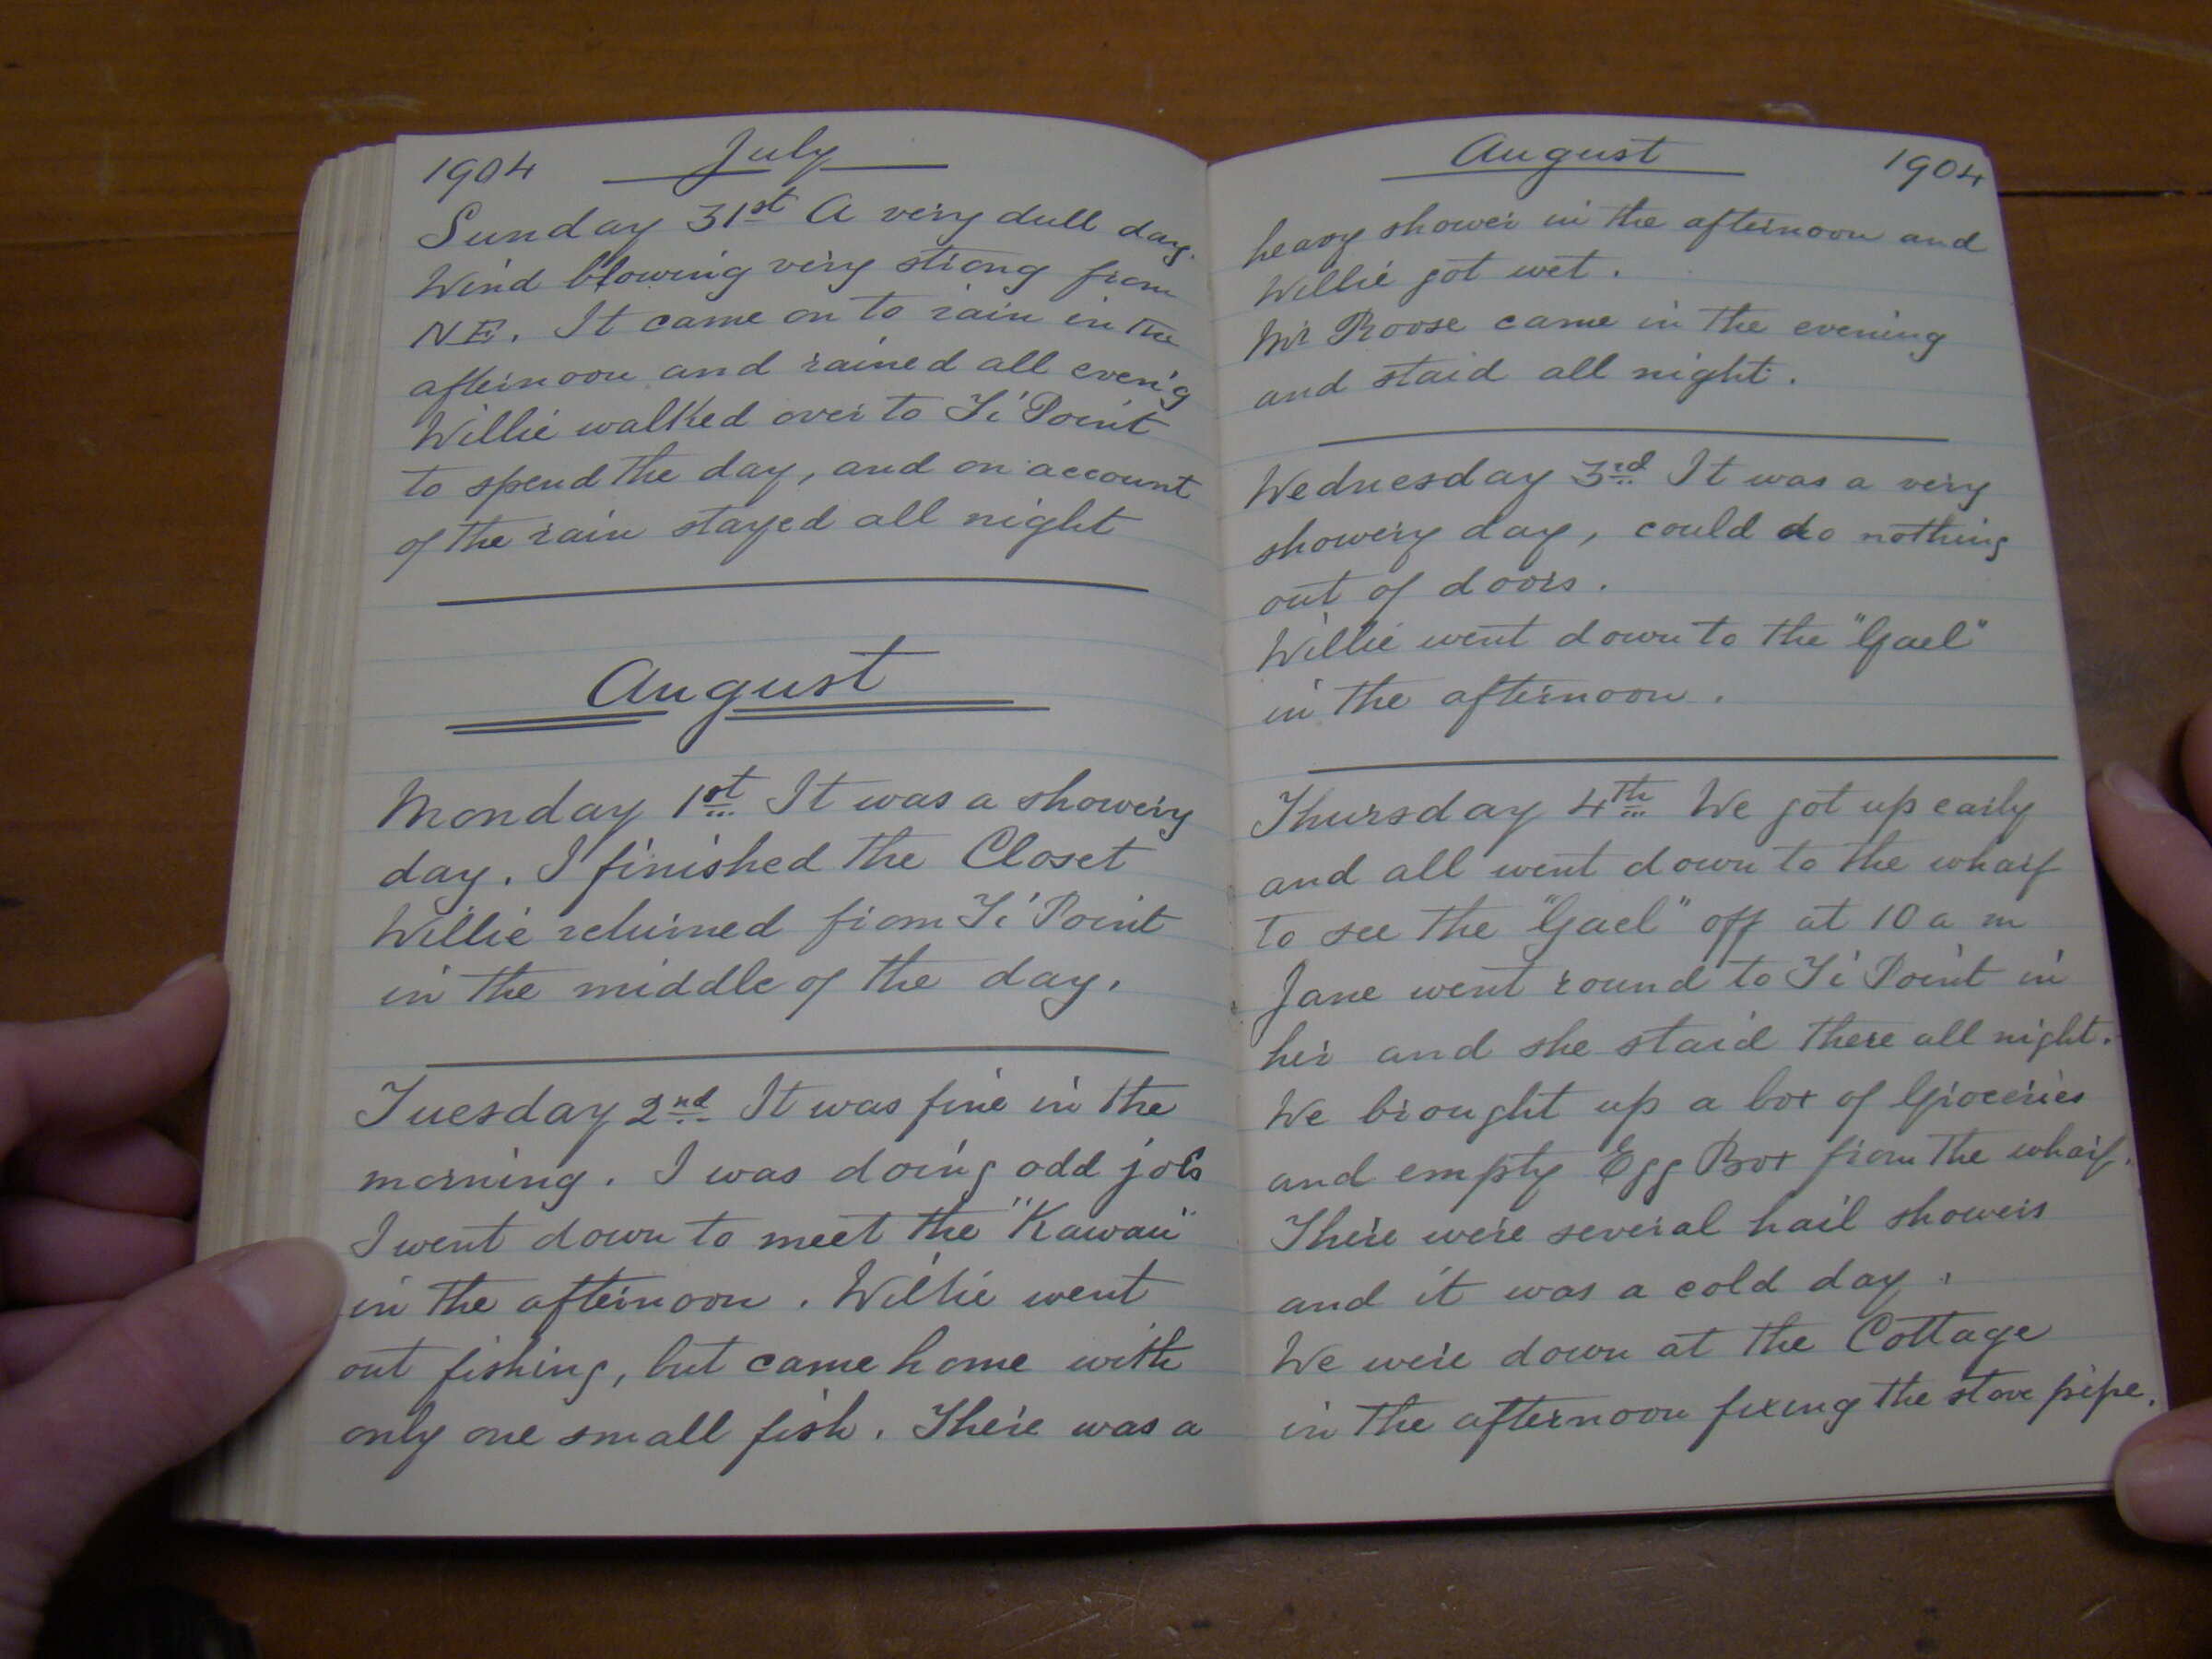 1904 July
Sunday 31st A very dull day.
Wind blowing very strong from
NE. It came on to rain in the
afternoon and rained all even'g
Willie walked over to Ti Point
to spend the day, and on account
of the rain stayed all night
August
Monday 1st It was a showery
day. I finished the Closet
Willie returned from Ti Point
in the middle of the day.
Tuesday 2nd It was fine in the
morning. I was doing odd jobs
I went down to meet the "Kawau"
in the afternoon. Willie went
out fishing, but came home with
only one small fish. There was a
August 1904
heavy shower in the afternoon and
Willie got wet.
Mr Roose came in the evening
and staid all night.
Wednesday 3rd It was a very
showery day, could do nothing
out of doors.
Willie went down to the "Gael"
in the afternoon.
Thursday 4th We got up early
and all went down to the wharf
to see the "Gael" off at 10 a m
Jane went round to Ti Point in
her and she staid there all night.
We brought up a box of Groceries
and empty Egg Box from the wharf.
There were several hail showers
and it was a cold day.
We were down at the Cottage
in the afternoon fixing the stove pipe.